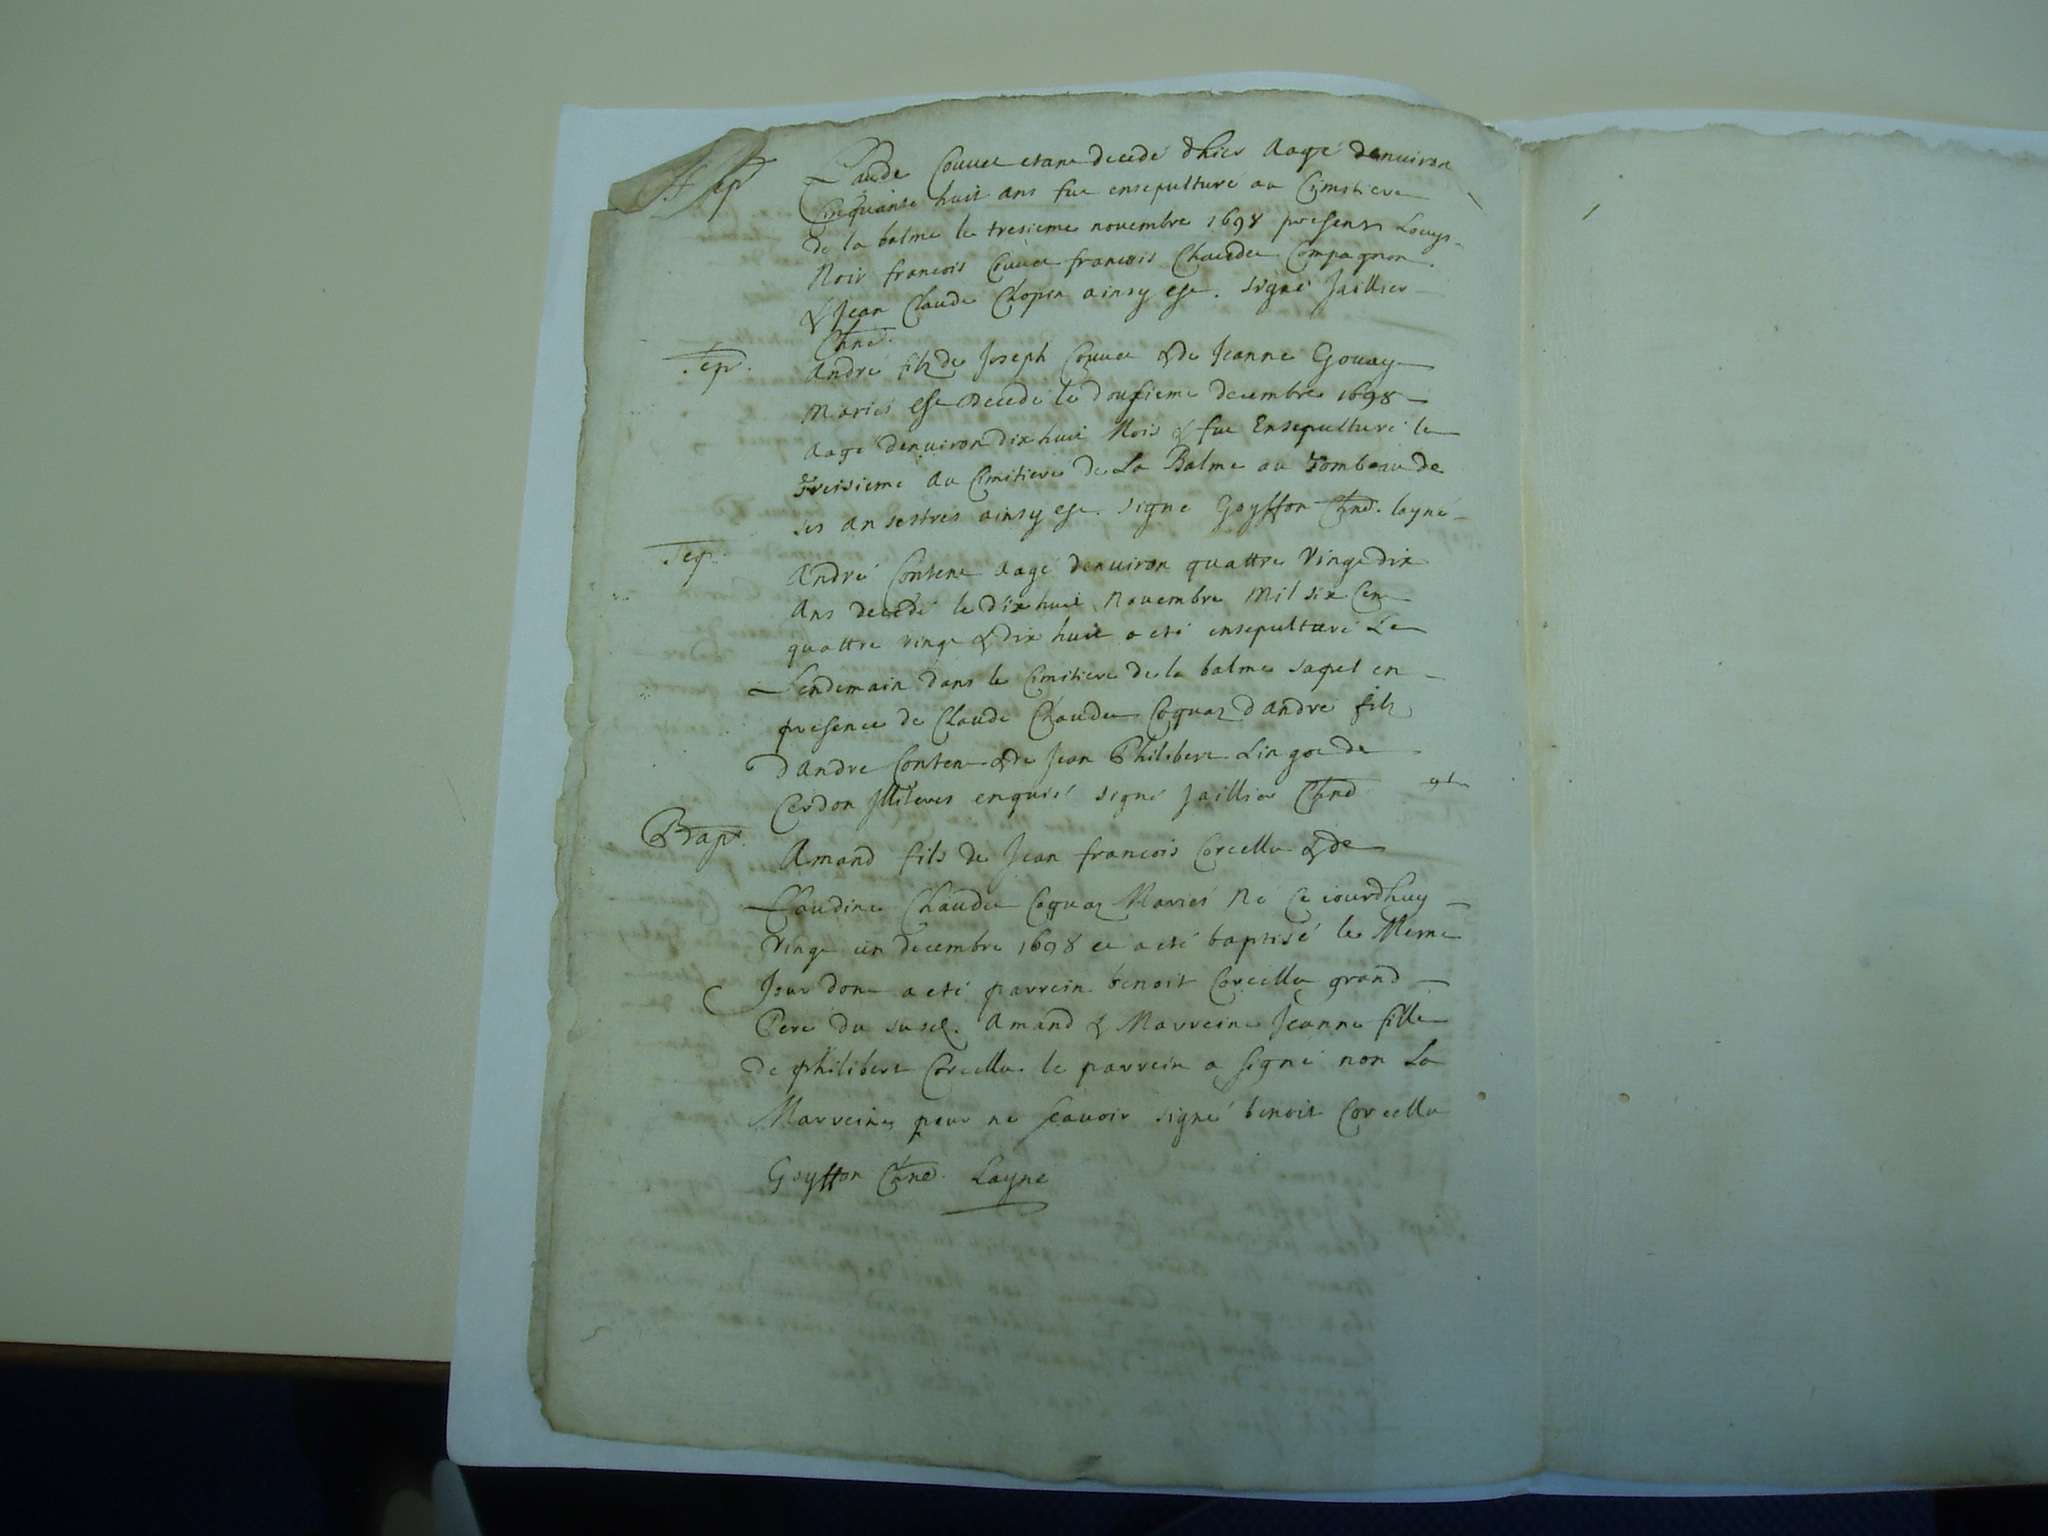 Sep
Claude Couuet estant decedé dhier Aagé denuiron
Cinquante huit ans fut ensepulturé au Cymitiere
de la balme le tresieme nouembre 1698 presens Louys
Noir francois Couuet francois Chaudet Compagnon
& Jean Claude Chopin ainsy est. signé Jaillier
Chne.
Sep.
André filz de Joseph Couuet & de Jeanne Gouay
Mariés est decedé le dousieme decembre 1698
Aagé denuiron dix huit Mois & fut Ensepulturé le
Treisieme Au Cimitiere de La Balme au Tombeau de
ses ansestres ainsy est. signé Goyffon Chne. layné
Sep.
André Contene aagé denuiron quattre Vingt dix
Ans decedé le dix huit Nouembre Mil six Cent
quattre vingt & dix huit a eté ensepulturé Le
Lendemain dans le Cimitiere de la balme saquel en
presence de Claude Chaudet Coquaz d'André filz
d'andre Contene & de Jean Philibert Lingot de
Cerdon illiteres enquis signé Jaillier Chne
Bapt.
Amand fils de Jean francois Corcellu & de
Claudine Chaudet Coquaz Mariés Né Ce iourdhuy
Vingt un decembre 1698 et a eté baptisé le Meme
Jour dont a eté parrein benoit Corcellu grand
Pere du susd. Amand & Marreine Jeanne fille
de philibert Corcellu le parrein a signé non La
Marreine pour ne scauoir signé benoit Corcellu
Goyffon Chne. Layné